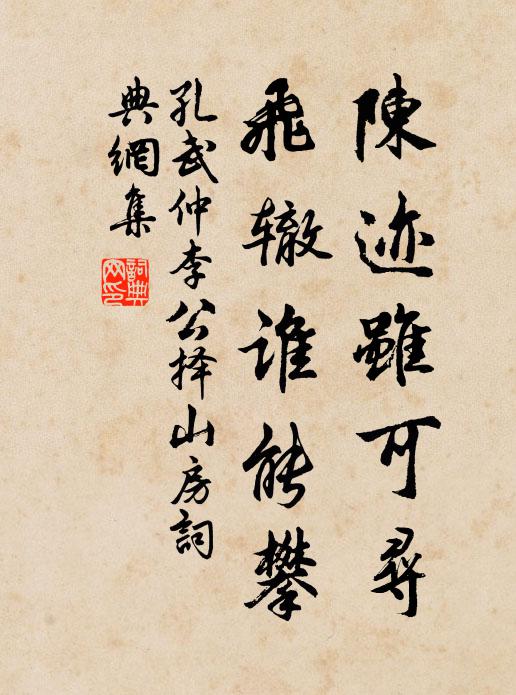 陳迹雖可尋
飛辙谁能攀
孔武仲李公择山房詞
典網集
詞典
网印